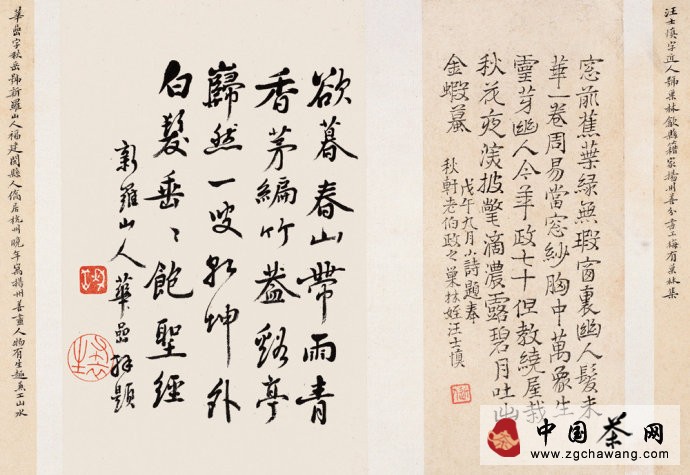 汪士慎字近人號巢林歙縣籍家揚州善分書工梅有巢林集
窓前蕉葉綠無瑕窗裏幽人髮未
華一卷周易當窓紗胸中萬象生
靈芽幽人今年政七十但教繞屋栽
秋花夜深披氅滴濃露碧月吐出
金蝦蟇
戊午九月小詩題奉
秋軒老伯政之巢林姪汪士慎
欲暮春山帶雨青
香茅編竹蓋谿亭
巋然一叟乾坤外
白髮垂〻飽聖經
新羅山人華嵒題
華嵒字秋岳號新羅山人福建閩縣人僑居杭州晚年寓揚州善畫人物有生趣兼工山水
中国茶网
www.zgchawang.com